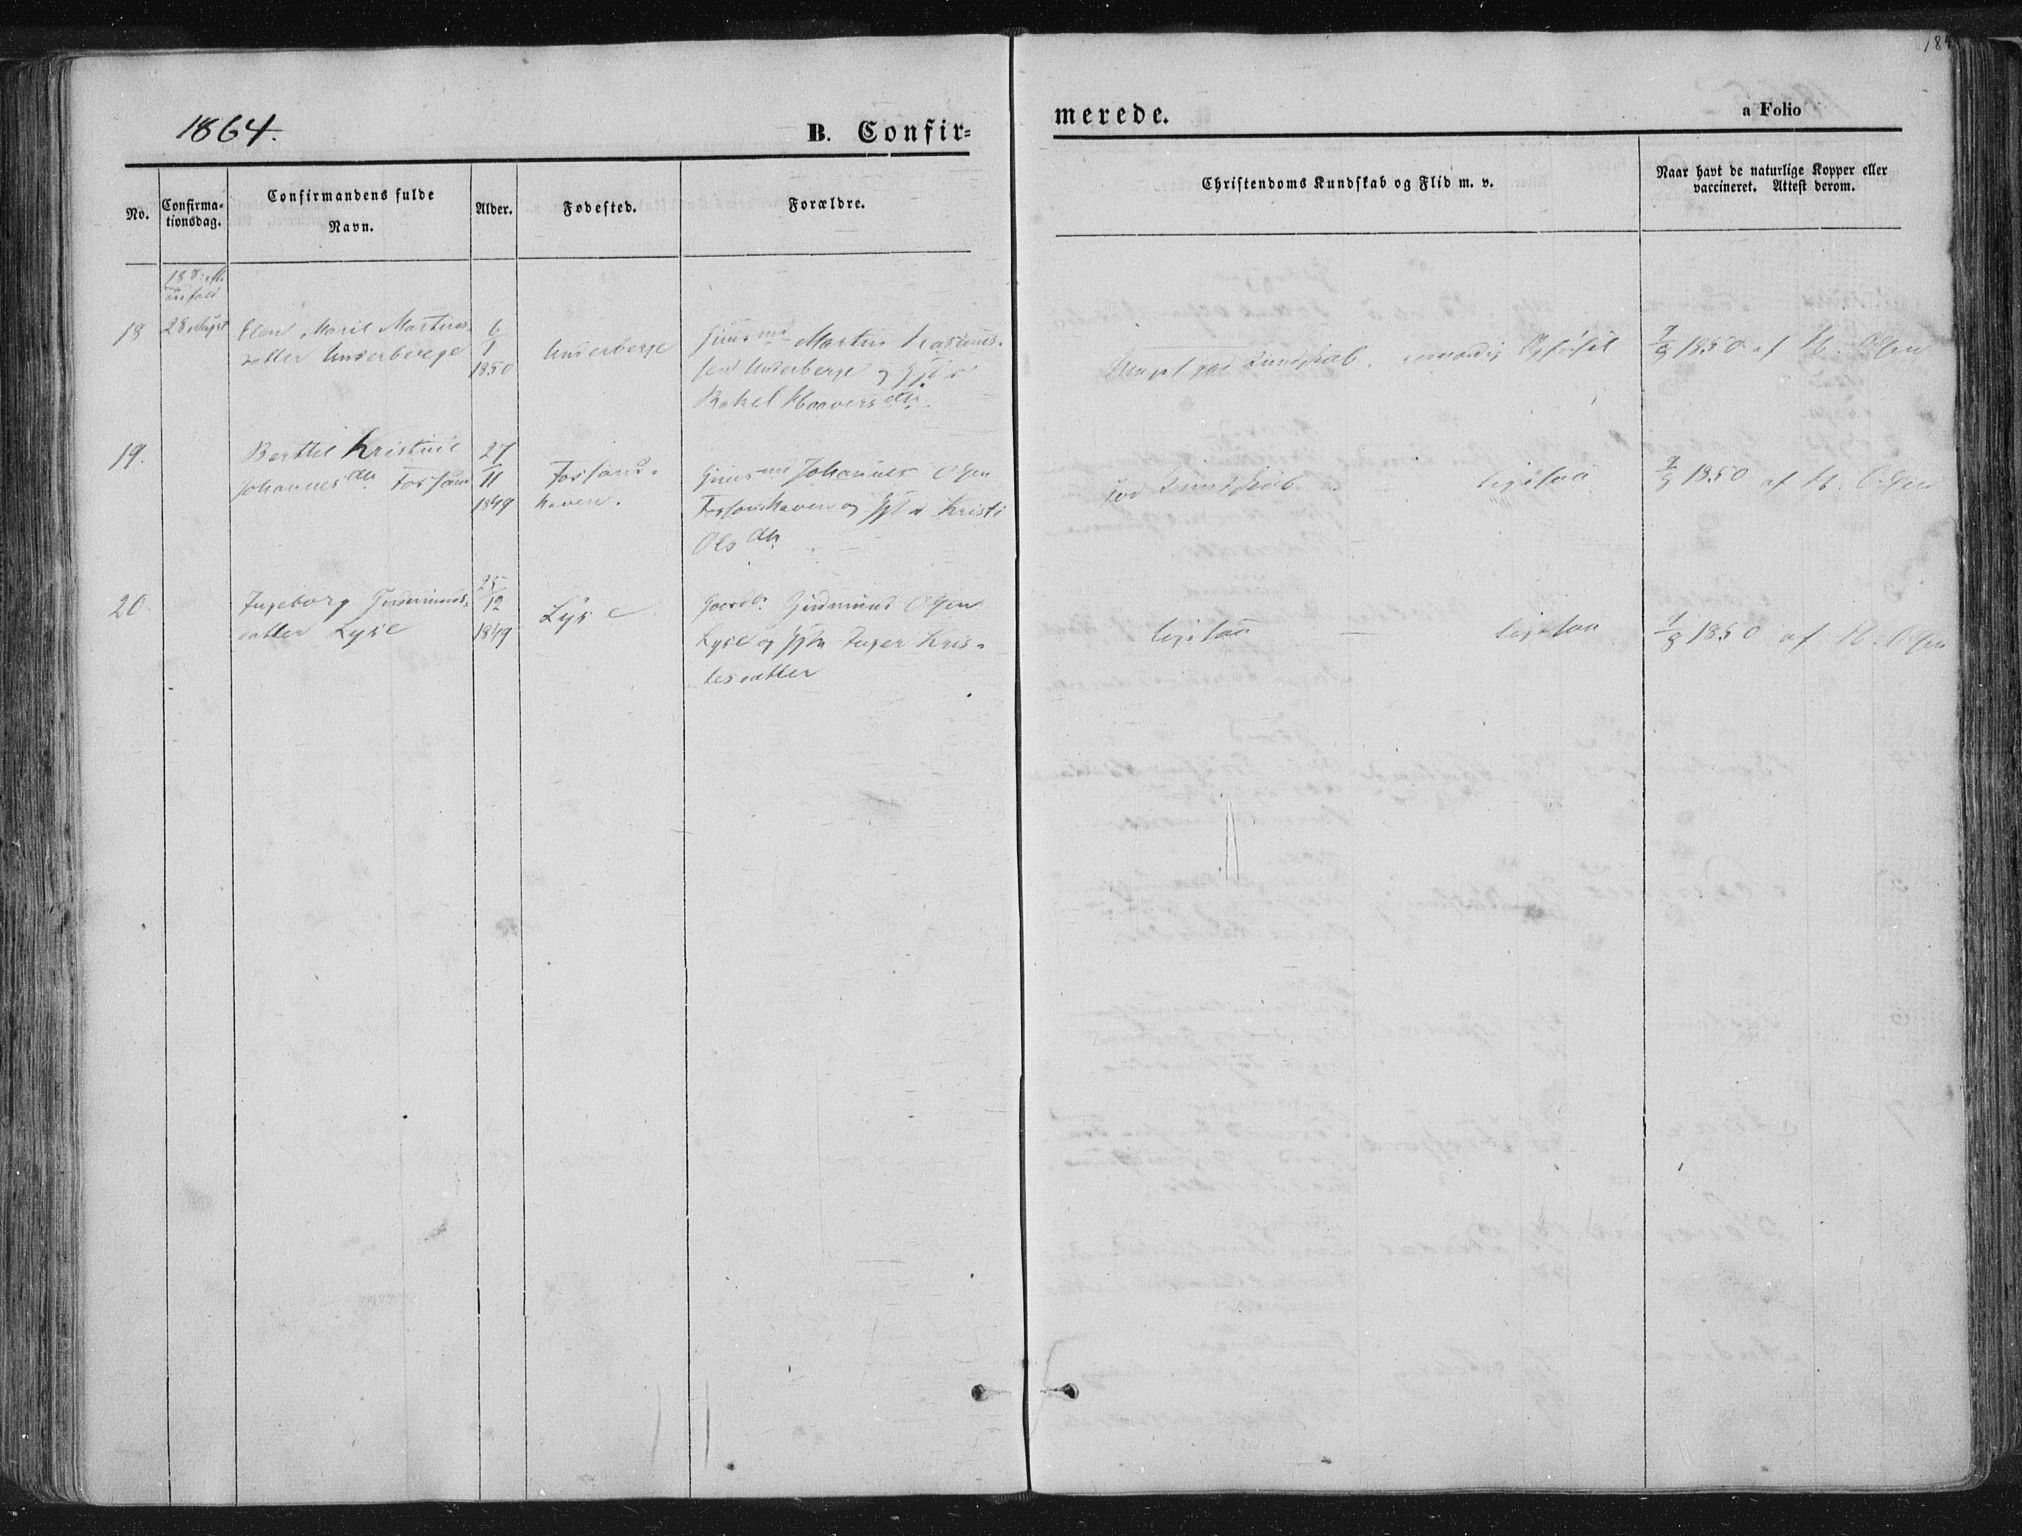 184
1864.
B. Confir=
merede.
a Folio
No.
Confirma-
tionsdag.
Confirmandens fulde
Navn.
Alder.
Fødested.
Forældre.
Christendoms Kundskab og Flid m. v.
Naar havt de naturlige Kopper eller
vaccineret. Attest derom.
18
28 August
Elen Marie Martins-
datter Underberge
6
1
1850
Underberge
Martin
sen Underberge og
Rakel Haavers dtr
Meget god Kundskab. Opførsel
9/8 1850 af H. Olsen
19.
Berthe Kristine
Johannes dtr Forsan
27
11
1849
Forsand-
haven.
Johannes Olsen
Forsandhaven og Kristi
Ols dtr
god Kundskab
ligesaa
9/9 1850 af H. Olsen
20.
Ingeborg Gudmunds-
datter Lyse
25
12
1849
Lyse
Gaardb. Gudmund Olsen
Lyse og Inger Kris-
tesdatter
ligesaa — ligesaa
9/8 1850 af H. Olsen